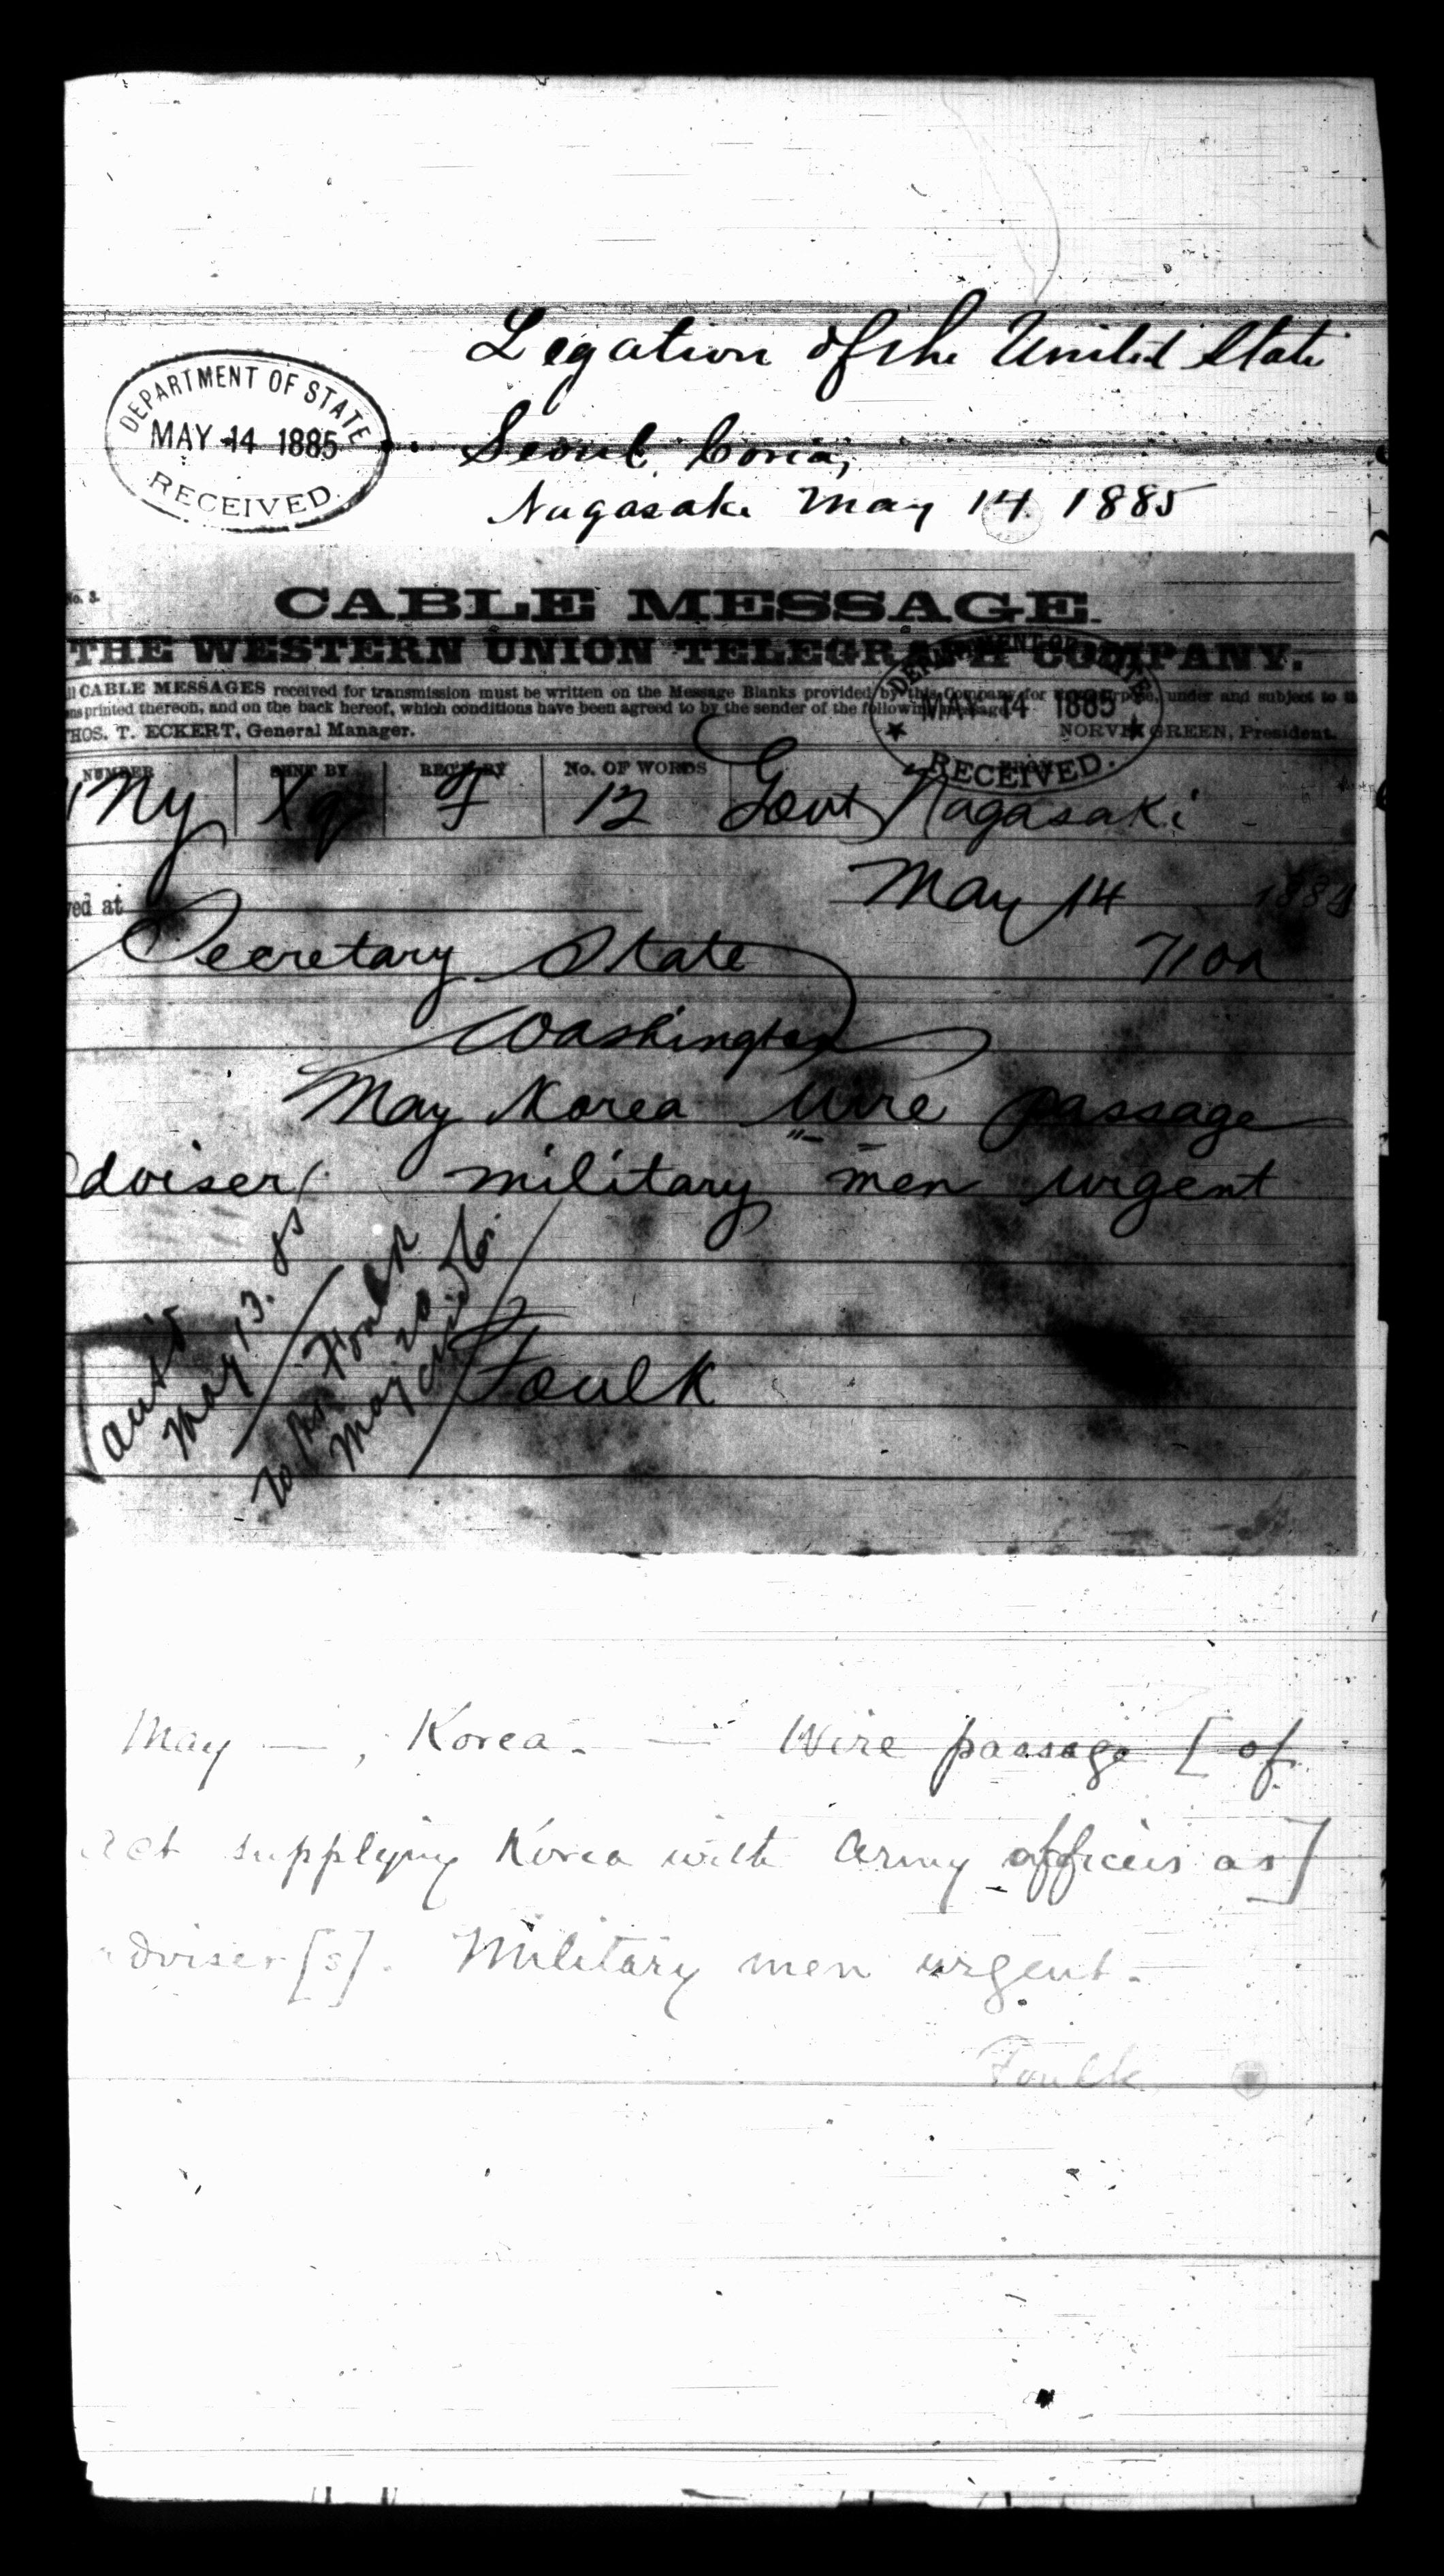 Legation of the United State
DEPARTMENT OF STATE
MAY 14 1885
RECEIVED.
Seoul, Corea,
Nagasaki May 14. 1885
No. 3.
CABLE MESSAGE.
THE WESTERN UNION TELEGRAPH COMPANY.
CABLE MESSAGES received for transmission must be written on the Message Blanks provided by this Company for purpose, under and subject to
printed thereon, and on the back hereof, which conditions have been agreed to by the sender of the following message
THOS. T. ECKERT, General Manager. NORVIN GREEN, President.
DEPARTMENT OF STATE
MAY 14 1885
RECEIVED.
NUMBER SENT BY REC'D BY No. OF WORDS
Ny Xq F 12 Govt Nagasaki
May 14 188
ved at
Secretary State 710a
Washington
May Korea Wire passage
dviser military men urgent
May 13. 85
Foulk
May 20
Foulk
May — , Korea. — Wire passage [of
act supplying Korea with Army officers as]
dviser[s]. Military men urgent.
Foulk